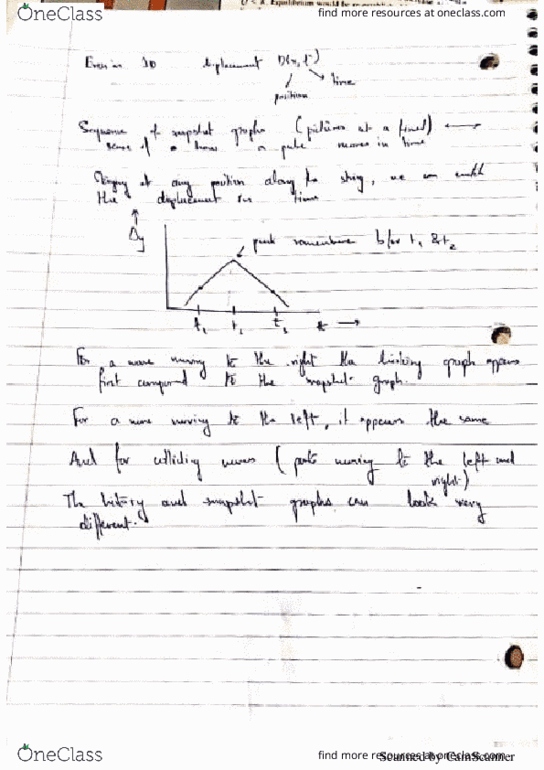 OneClass
find more resources at oneclass.com
Even in 1D displacement D(x, t)
position
time
Sequence of snapshot graphs (pictures at a fixed)
sense of a how a pulse moves in time
Staying at any position along the string, we can
the displacement in time
Δy
peak somewhere b/w t₁ & t₂
t₁
For a wave moving to the right the history graph appears
first compared to the snapshot graph.
For a wave moving to the left, it appears the same
And for colliding waves (parts moving to the left and
right)
The history and snapshot graphs can look very
different.
OneClass
find more resources at oneclass.com
Scanned by CamScanner